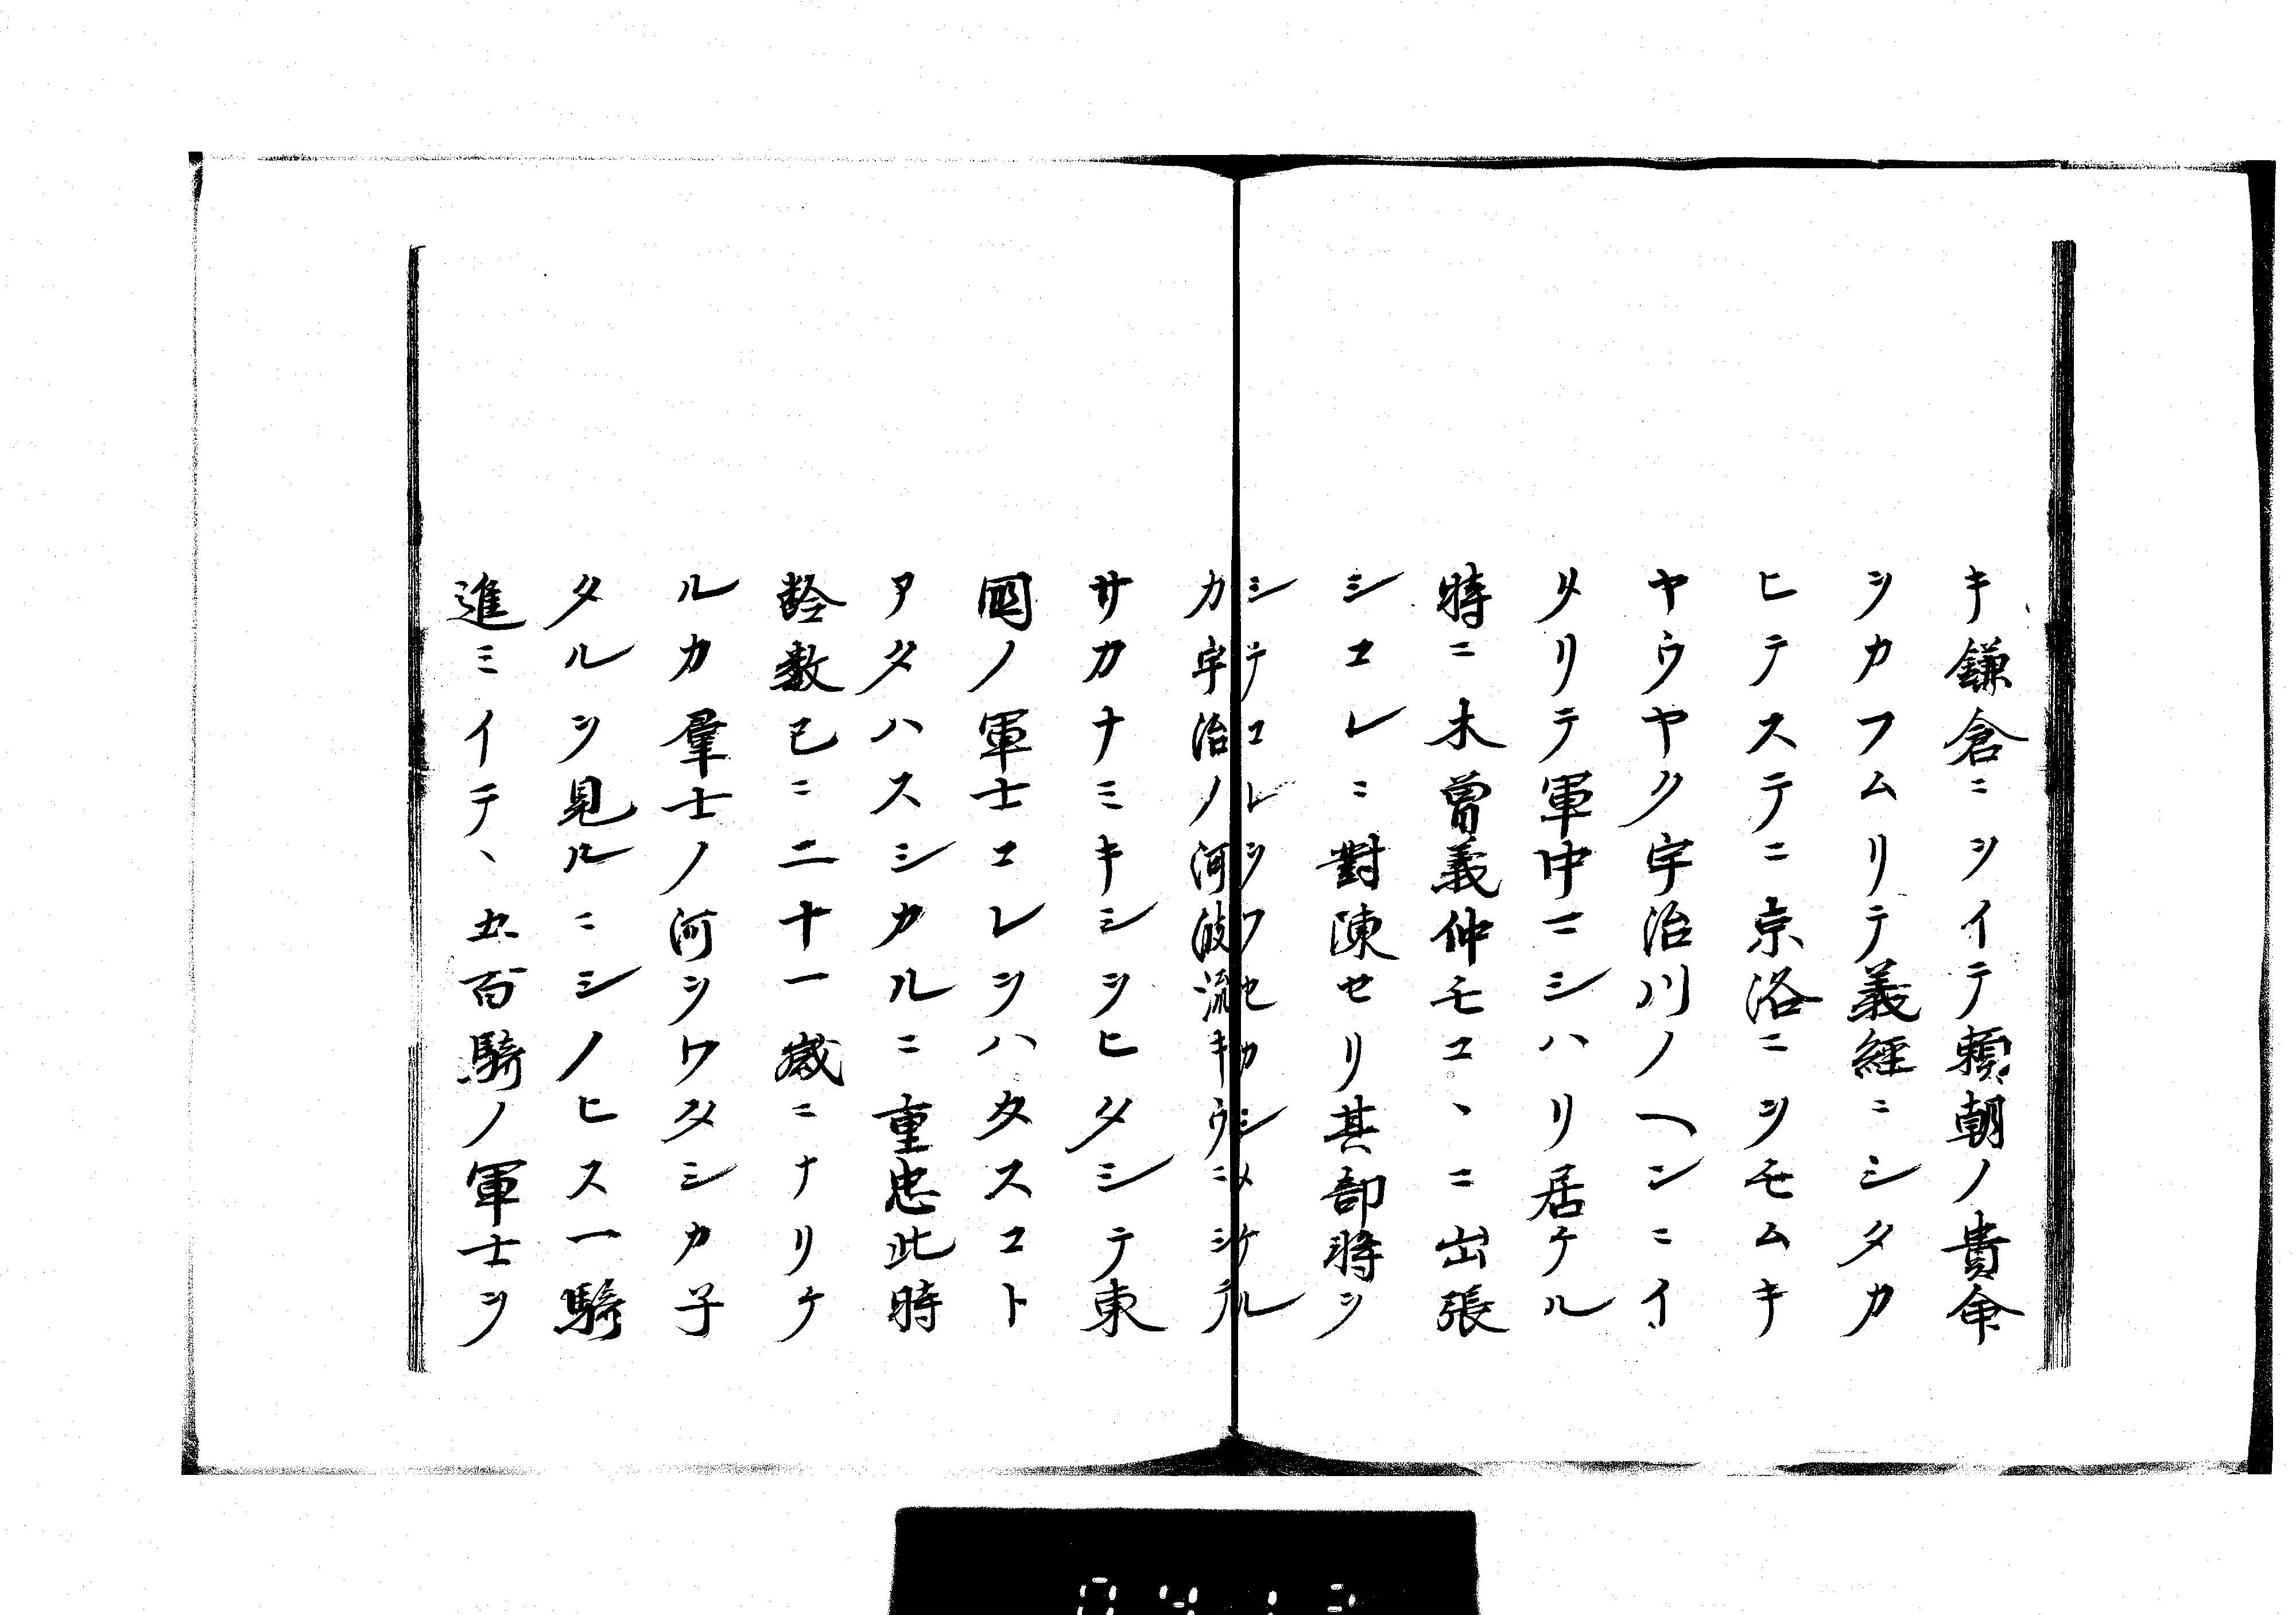 キ鎌倉ニヲイテ頼朝ノ貴命
ヲカフムリテ義經ニシタカ
ヒテステニ京洛ニヲモムキ
ヤウヤク宇治川ノヘンニイ
タリテ軍中ニシハリ居ケル
時ニ木曽義仲モコヽニ出張
シコレニ對陳セリ其部將ヲ
シテコレヲフセカシメケル
カ宇治ノ河波流キウニシテ
サカナミキシヲヒタシテ東
國ノ軍士コレヲハタスコト
アタハスシカルニ重忠此時
齡數已ニ二十一歳ニナリケ
ルカ羣士ノ河ヲワタシカ子
タルヲ見ルニシノヒス一騎
進ミイテヽ五百騎ノ軍士ヲ